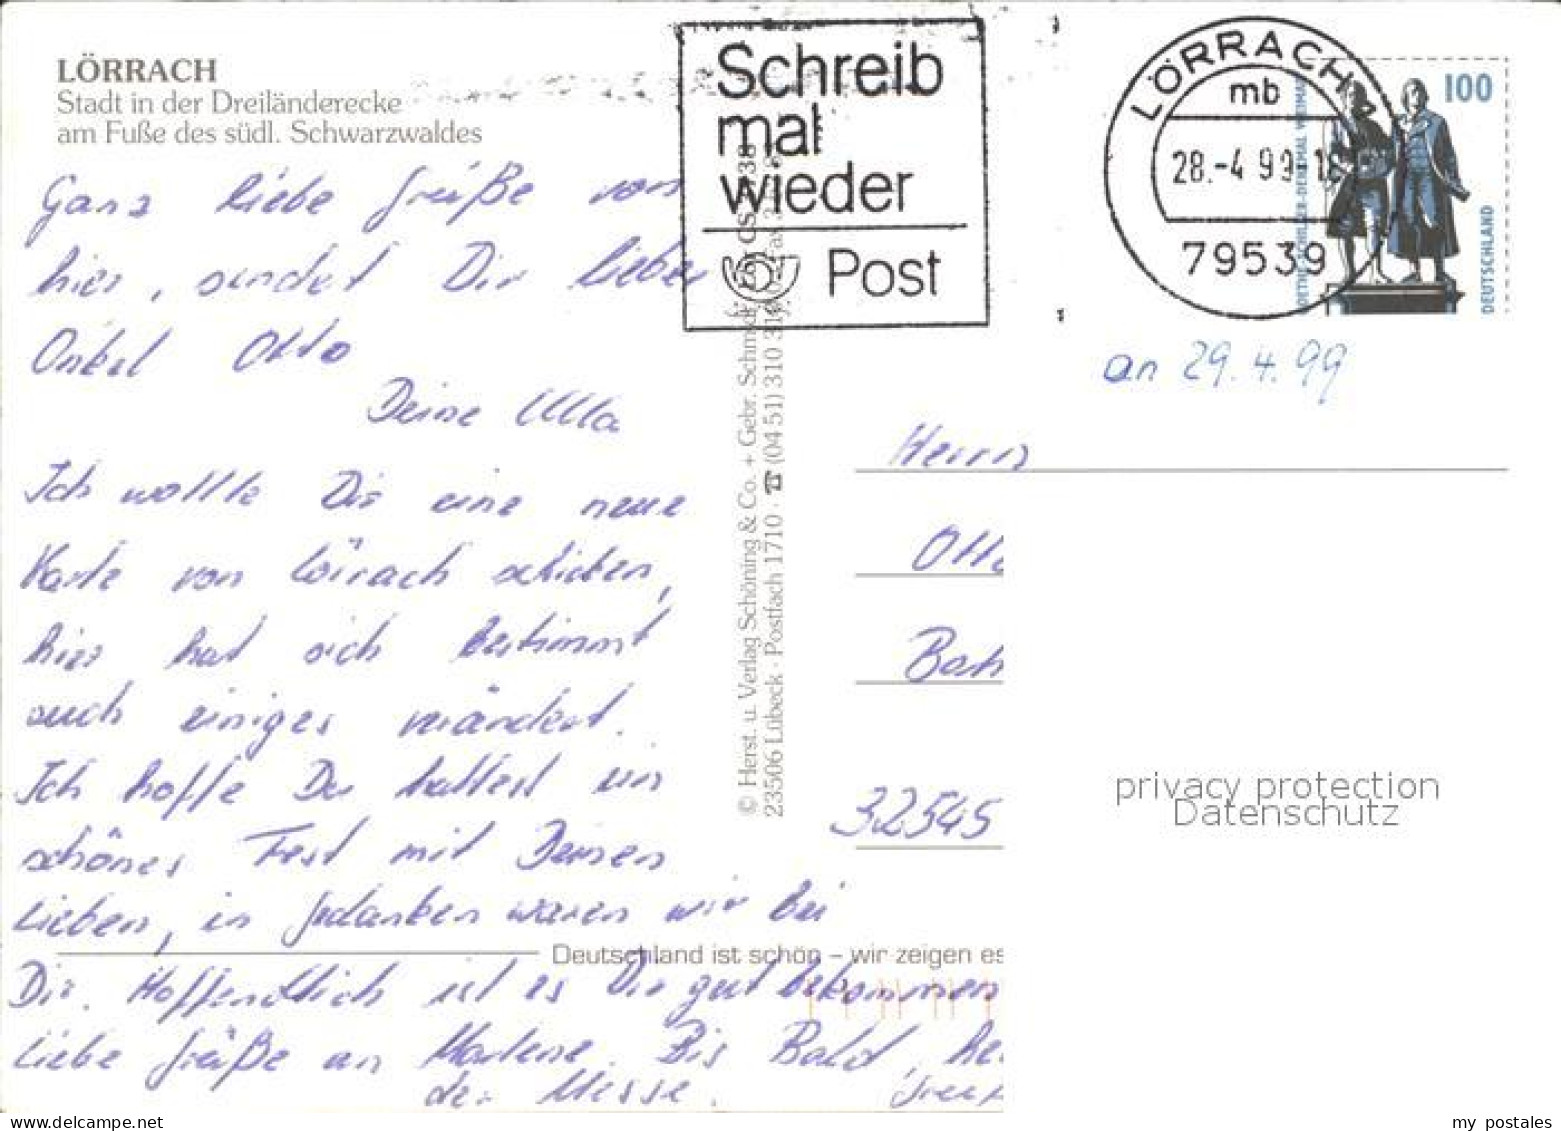 LÖRRACH
Stadt in der Dreiländerecke
am Fuße des südl. Schwarzwaldes
Ganz liebe Grüße von
hier, sendet Dir lieber
Onkel Otto
Deine Ulla
Ich wollte Dir eine neue
Karte von Lörrach schicken,
hier hat sich bestimmt
auch einiges verändert.
Ich hoffe Du hattest ein
schönes Fest mit Deinen
Lieben, in Gedanken waren wir bei
Dir. Hoffendlich ist es Dir gut bekommen
Liebe Grüße an Marlene. Bis Bald,
der Messe.
Schreib
mal
wieder
Post
LÖRRACH 1
mb
28.-4.99-18
79539
100
GOETHE-SCHILLER-DENKMAL WEIMAR
DEUTSCHLAND
an 29.4.99
Herrn
Otto
32545
© Herst. u. Verlag Schöning & Co. + Gebr. Schmidt
23506 Lübeck · Postfach 1710 · ☎ (04 51) 310 31
Deutschland ist schön – wir zeigen es
privacy protection
Datenschutz
my postales